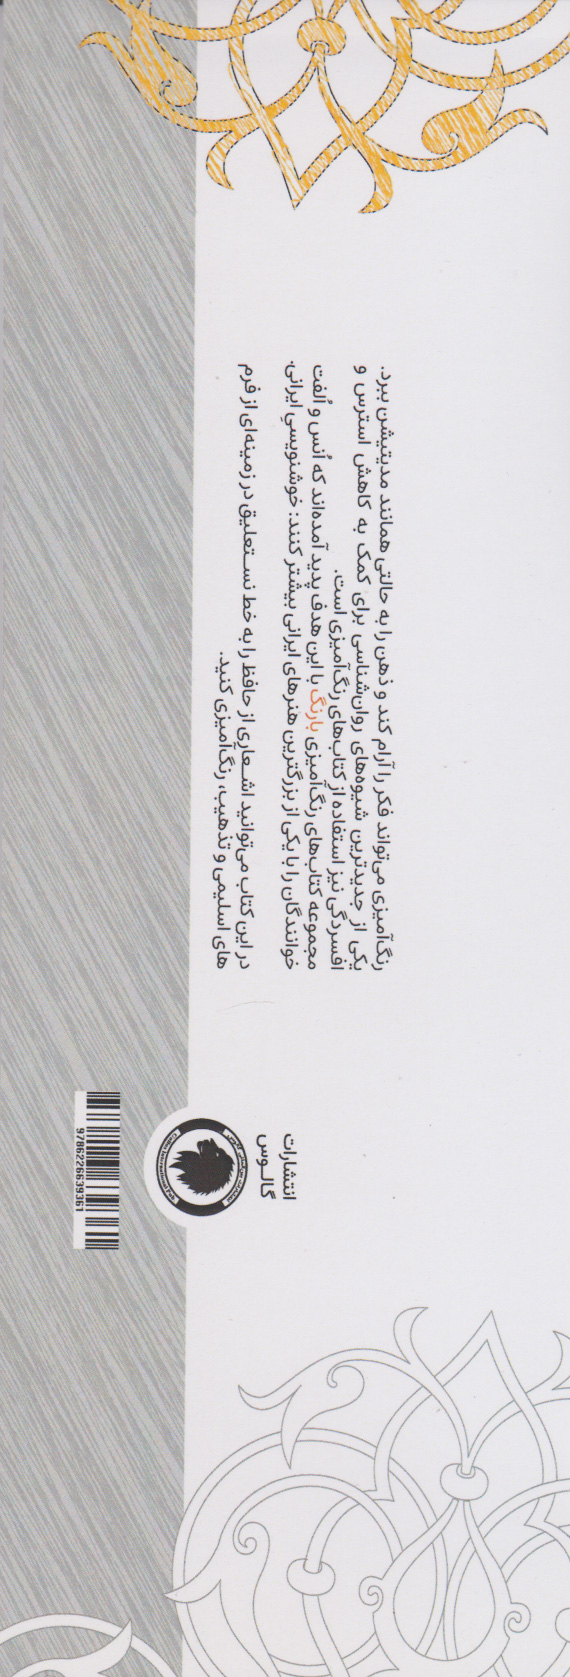 رنگ‌آمیزی می‌تواند فکر را آرام کند و ذهن را به حالتی همانند مدیتیشن ببرد.
یکی از جدیدترین شیوه‌های روان‌شناسی برای کمک به کاهش استرس و
افسردگی نیز استفاده از کتاب‌های رنگ‌آمیزی است.
مجموعه کتاب‌های رنگ‌آمیزی بارنگ با این هدف پدید آمده‌اند که اُنس و اُلفت
خوانندگان را با یکی از بزرگترین هنرهای ایرانی بیشتر کنند: خوشنویسیِ ایرانی.
در این کتاب می‌توانید اشعاری از حافظ را به خط نستعلیق در زمینه‌ای از فرم
های اسلیمی و تذهیب، رنگ‌آمیزی کنید.
انتشارات
گالوس
9786226639361